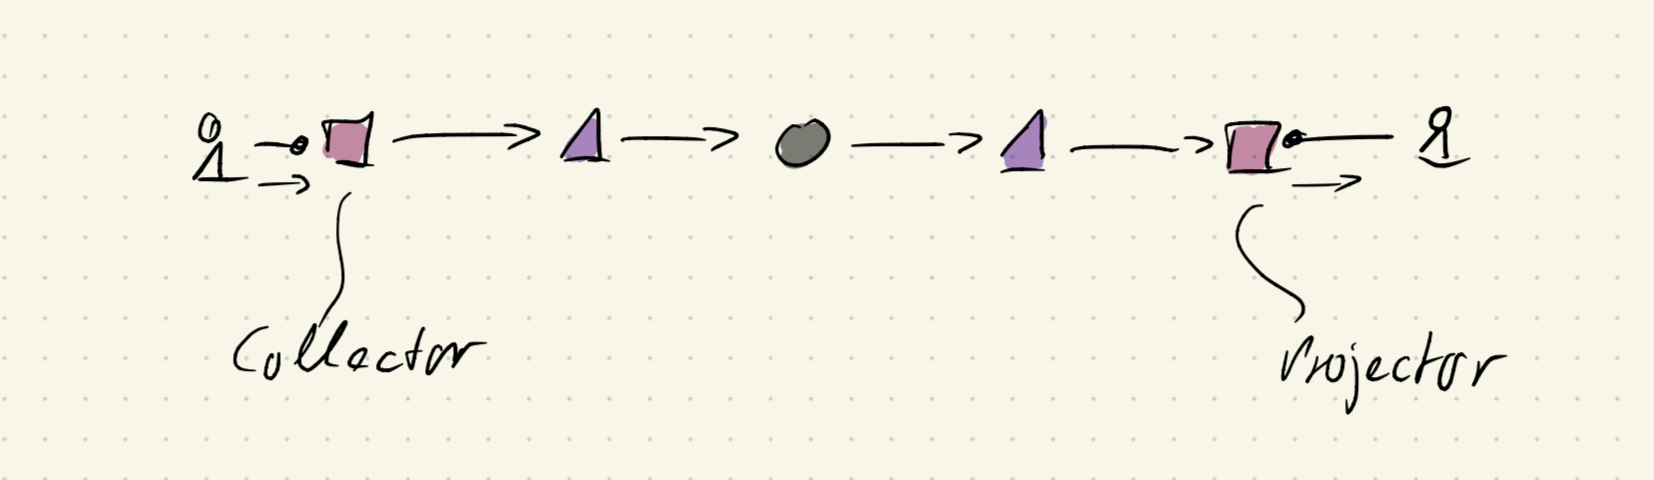 Collector
Projector